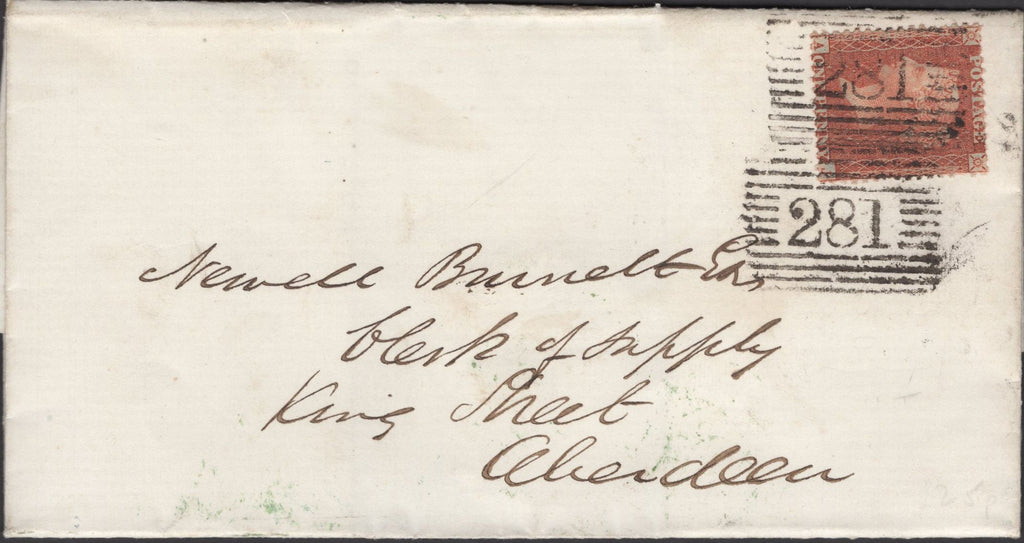 POSTAGE
281
281
Newell Burnett Esq
Clerk of Supply
King Street
Aberdeen